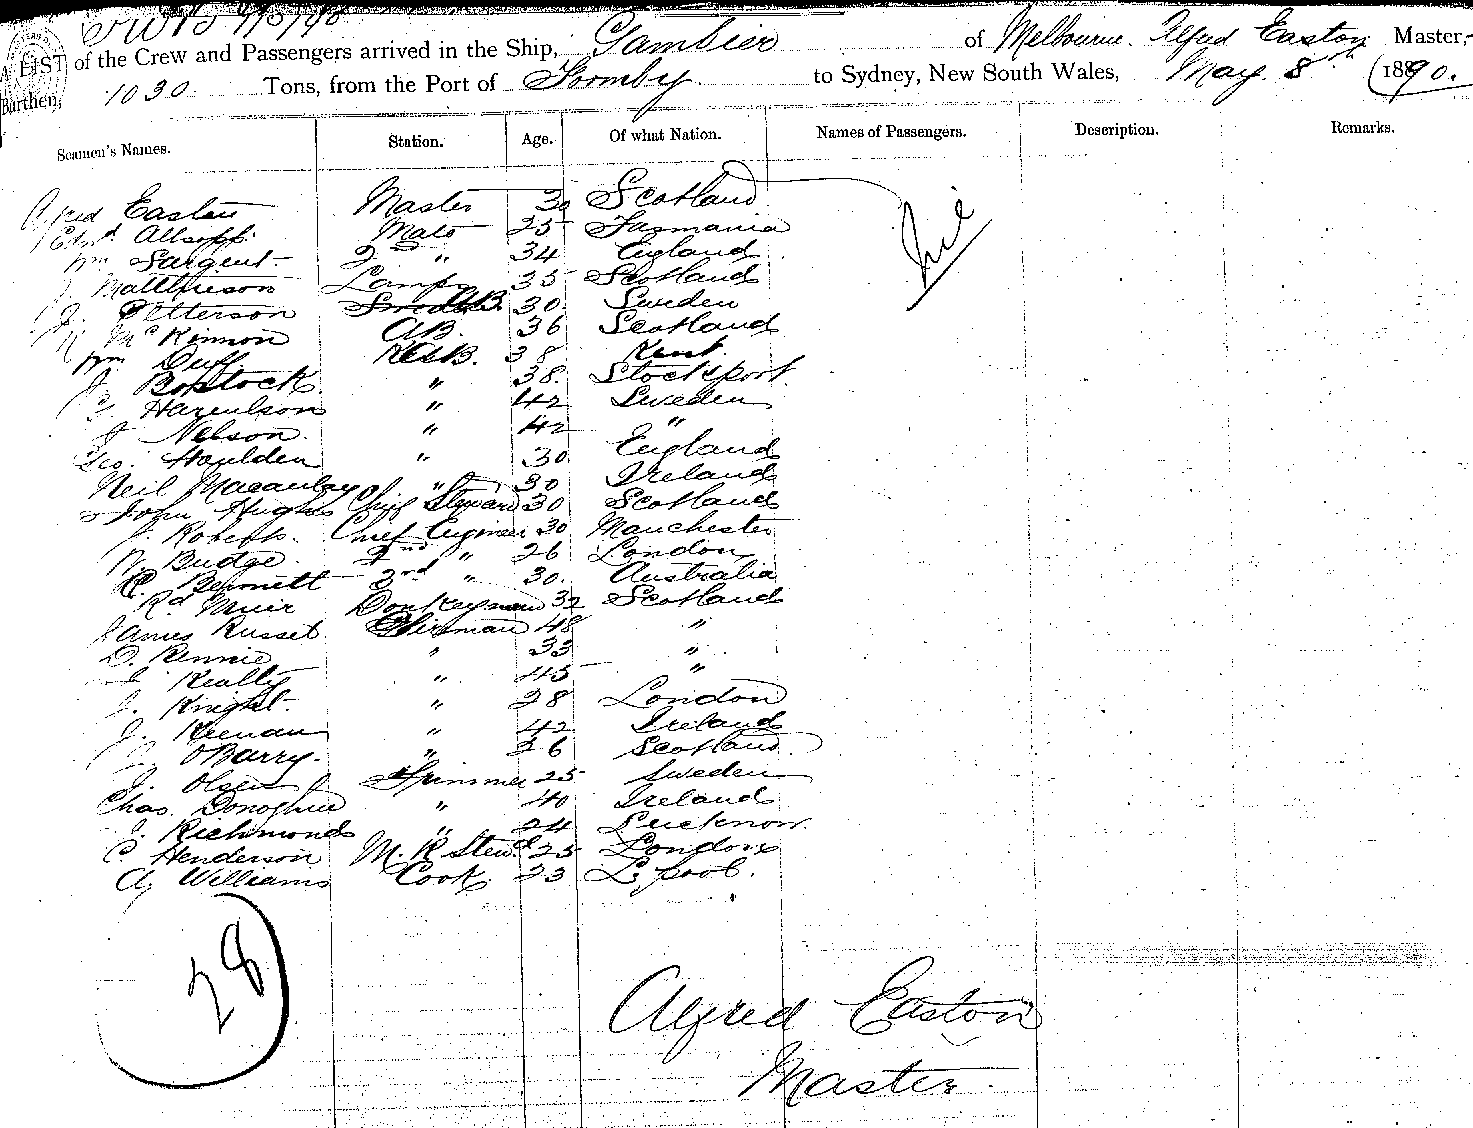 A LIST of the Crew and Passengers arrived in the Ship, Gambier of Melbourne. Alfred Easton Master,
Burthen, 1030 Tons, from the Port of to Sydney, New South Wales, May 8th 1890.
Seamen's Names. Station. Age. Of what Nation. Names of Passengers. Description. Remarks.
Alfred Easton Master 30 Scotland
Edwd Allsopp. Mate 25 Tasmania
Wm Sargent 2nd " 34 England
J. Matthieson Lamps 35 Scotland
J. Petterson AB. 30 Sweden
N. McKinnon AB. 36 Scotland
Wm Duff AB. 38 Kent.
J. Bostock " 38. Stockport.
Hazenlson " 42 Sweden
J Nelson. " 42 "
Geo. Houlden " 30 England
Neil Macaulay " 30 Ireland
John Hughes Chief Steward 30 Scotland
J. Roberts. Chief Engineer 30 Manchester
W. Budge. 2nd " 26 London
Bennett 3rd " 30. Australia
Rd Muir Donkeyman 32 Scotland
James Russel Fireman 48 "
D. Rennie " 33 "
J. Really " 45 "
J. Knight. " 28 London
J. Keenan " 42 Ireland
O'Barry. " 26 Scotland.
J. Olsen Trimmer 25 Sweden
Chas. Donoghue " 40 Ireland
J. Richmonds " 24 Lucknow.
C. Henderson M. R Stewd 25 London
A. Williams Cook 23 L'pool.
28
Alfred Easton
Master.